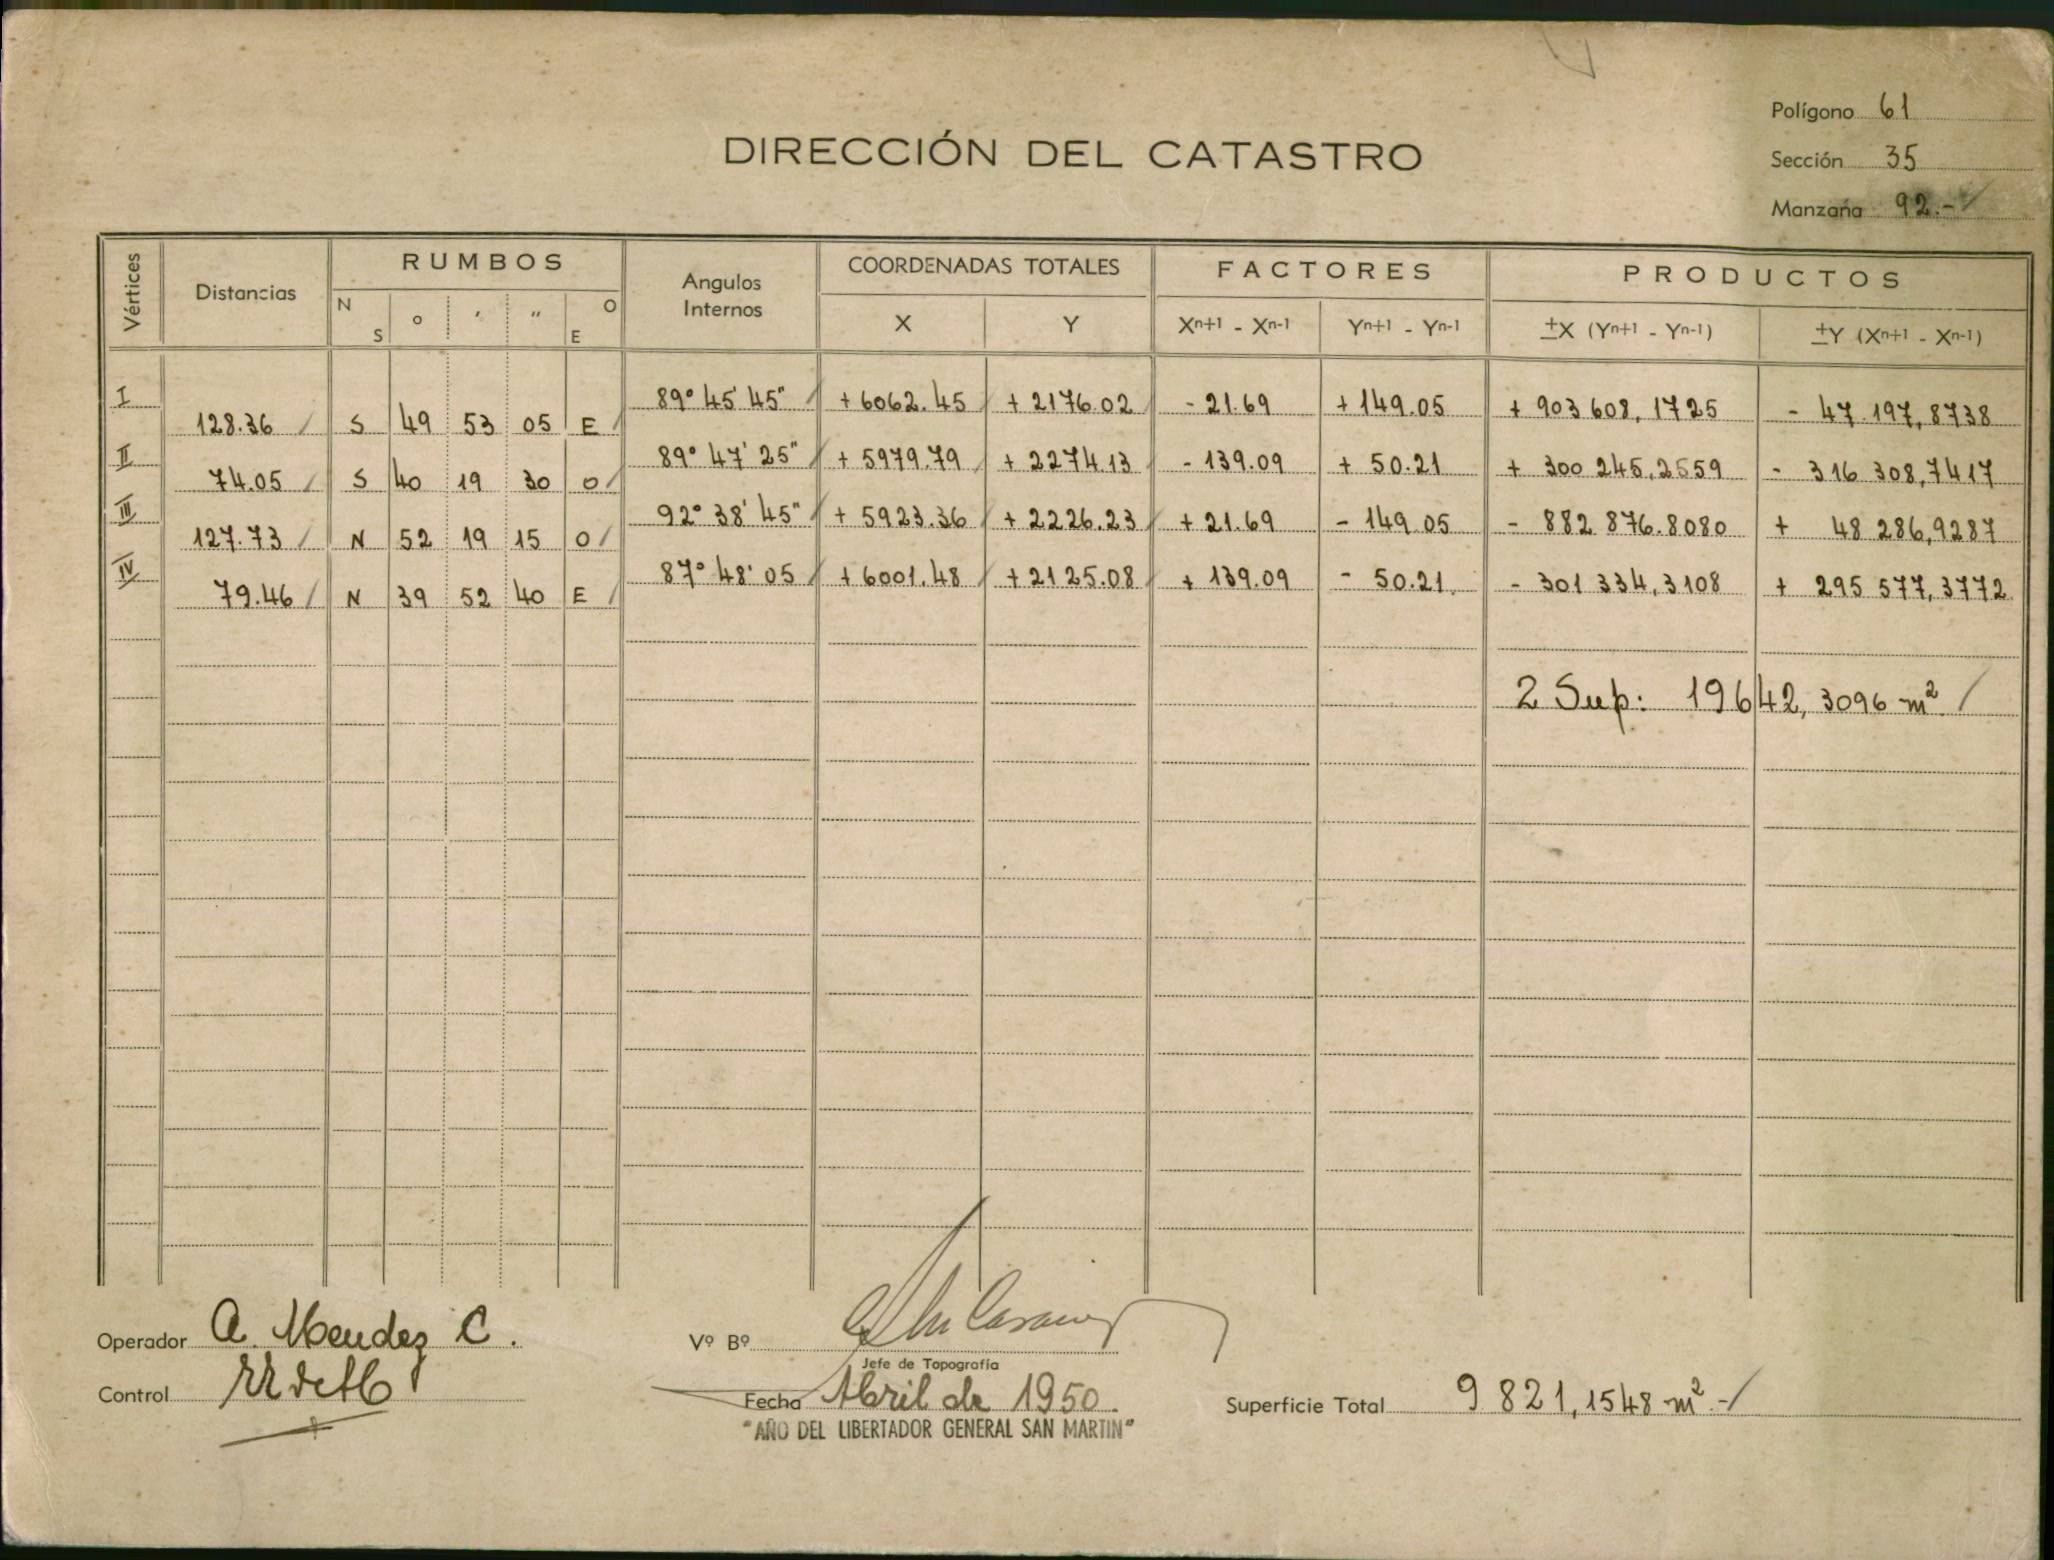 Polígono 61
DIRECCIÓN DEL CATASTRO
Sección 35
Manzana 92.-
Vértices Distancias RUMBOS Angulos Internos COORDENADAS TOTALES FACTORES PRODUCTOS
N S ° ' " O E X Y Xn+1 - Xn-1 Yn+1 - Yn-1 ±X (Yn+1 - Yn-1) ±Y (Xn+1 - Xn-1)
I 89° 45' 45" +6062.45 +2176.02 -21.69 +149.05 +903 608,1725 -47 197,8738
128.36 S 49 53 05 E
II 89° 47' 25" +5979.79 +2274.13 -139.09 +50.21 +300 245,2559 -316 308,7417
74.05 S 40 19 30 O
III 92° 38' 45" +5923.36 +2226.23 +21.69 -149.05 -882 876.8080 +48 286,9287
127.73 N 52 19 15 O
IV 87° 48' 05 +6001.48 +2125.08 +139.09 -50.21 -301 334,3108 +295 577,3772
79.46 N 39 52 40 E
2 Sup: 19642,3096 m²
Operador A. Mendez C.
Vº Bº
Jefe de Topografía
Control
Fecha Abril de 1950.
Superficie Total 9 821,1548 m².-
"AÑO DEL LIBERTADOR GENERAL SAN MARTIN"